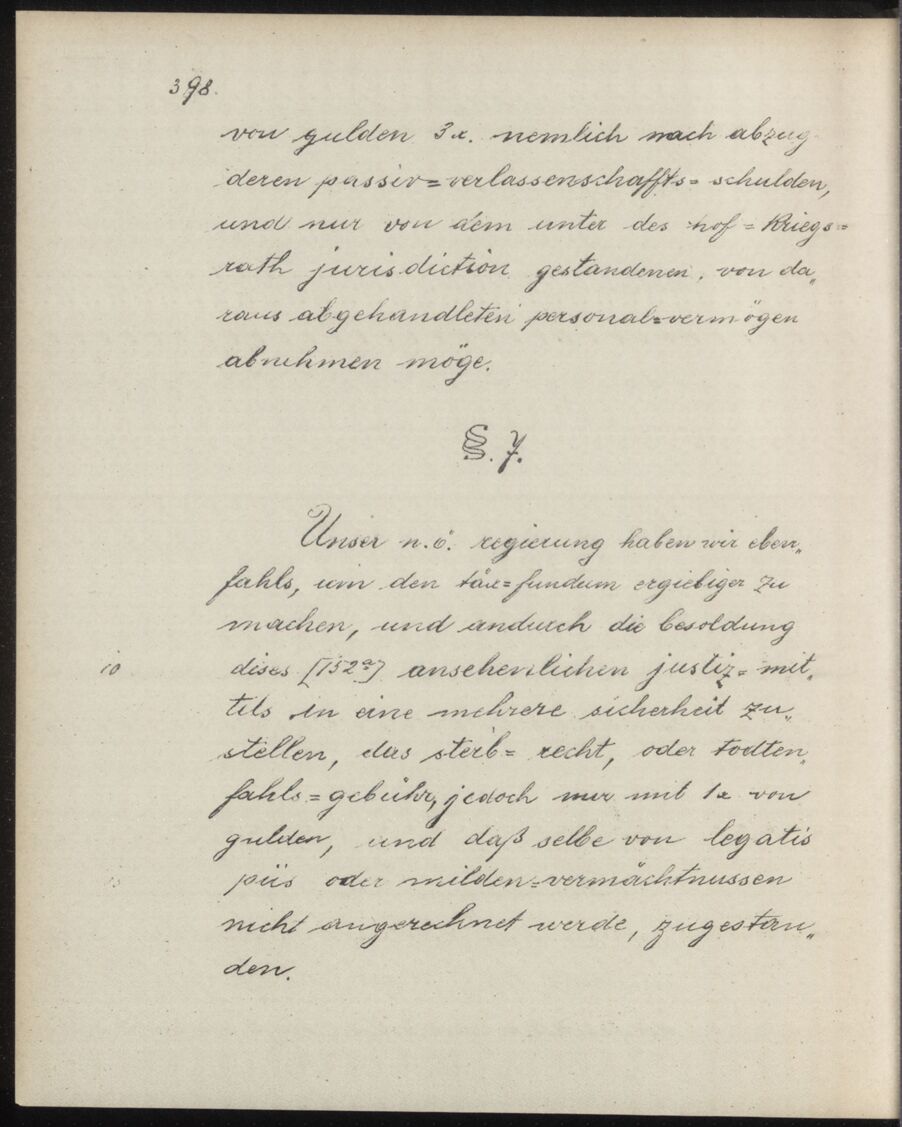 398.
von gulden 3 x. nemlich nach abzug
deren passiv=verlassenschaffts=schulden,
und nur von dem unter des hof=Kriegs=
rath jurisdiction gestandenen, von da„
raus abgehandleten personal=vermögen
abnehmen möge.
§. 7.
Unser n.ö. regierung haben wir eben„
fahls, um den tax=fundum ergiebiger zu
machen, und andurch die besoldung
10 dises [152a] ansehenlichen justiz=mit„
tels in eine mehrere sicherheit zu„
stellen, das sterb=recht, oder todten„
fahls=gebühr, jedoch nur mit 1 x von
gulden, und daß selbe von legatis
15 piis oder milden=vermächtnussen
nicht angerechnet werde, zugestan„
den.